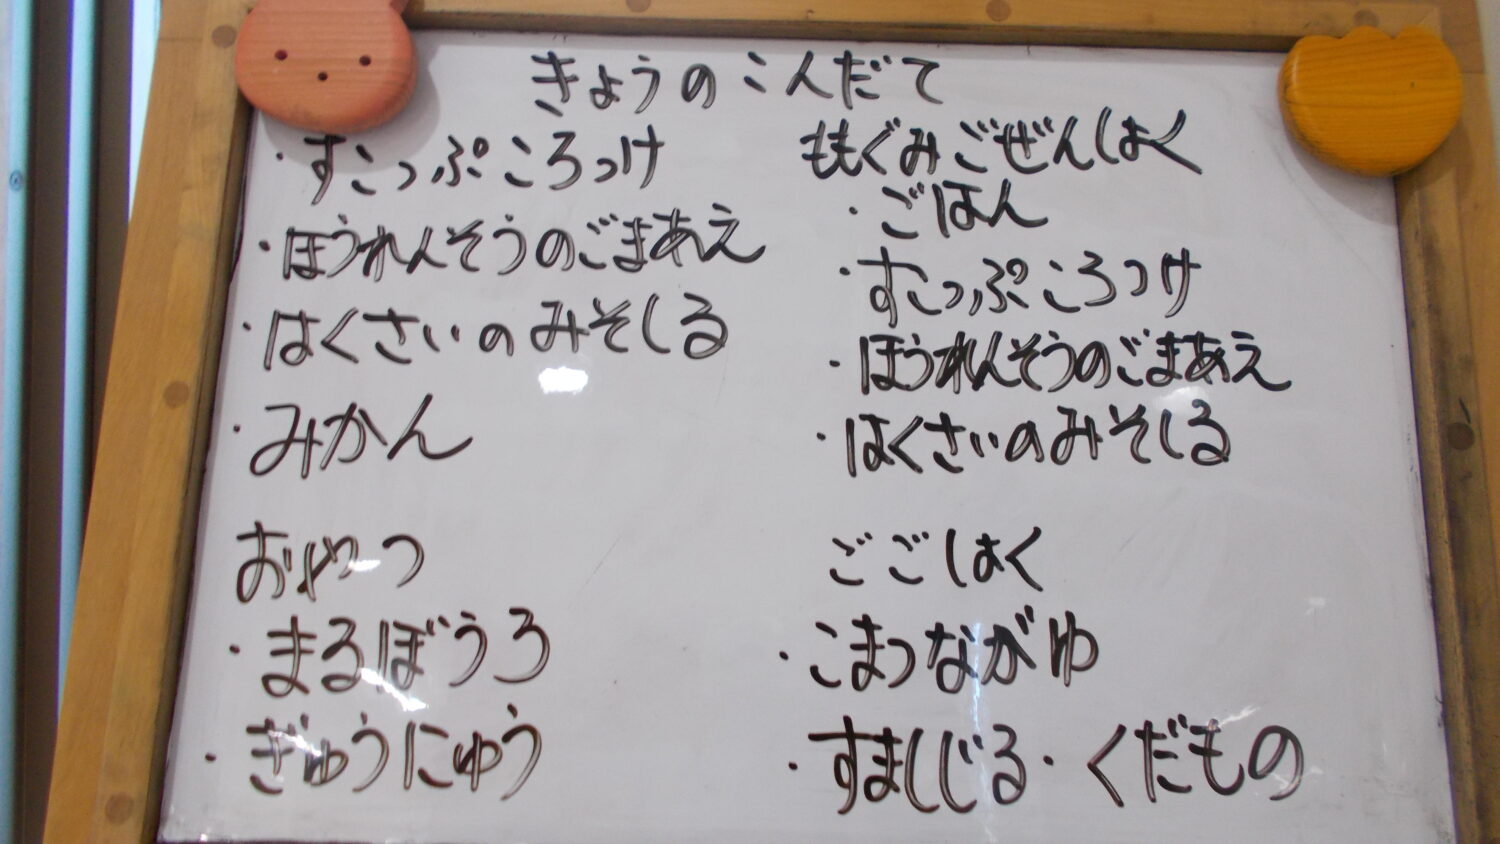 きょうのこんだて
・すこっぷころっけ
・ほうれんそうのごまあえ
・はくさいのみそしる
・みかん
おやつ
・まるぼうろ
・ぎゅうにゅう
ももぐみごぜんしょく
・ごはん
・すこっぷころっけ
・ほうれんそうのごまあえ
・はくさいのみそしる
ごごしょく
・こまつながゆ
・すましじる・くだもの